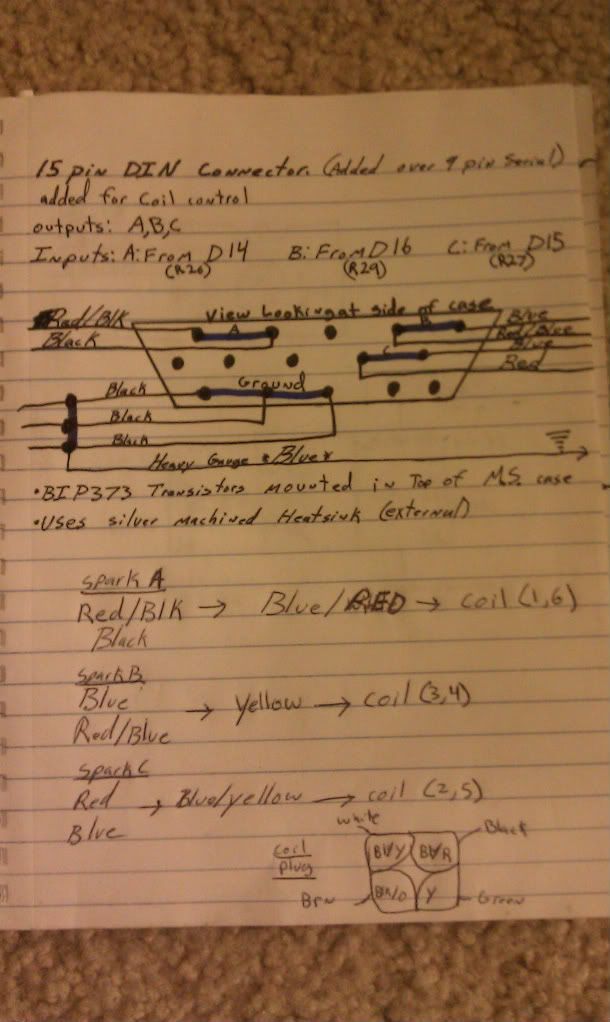 15 pin DIN Connector. (Added over 9 pin Serial)
added for Coil control
outputs: A,B,C
Inputs: A: From D14 B: From D16 C: From D15
(R26) (R29) (R27)
View Looking at side of case
Red/Blk A B Blue
Black Red/Blue
C Blue
Red
Black Ground
Black
Black
Heavy Gauge *Blue*
•BIP373 Transistors mounted in Top of M.S. case
•Uses silver machined Heatsink (external)
Spark A
Red/Blk → Blue/RED → coil (1,6)
Black
Spark B
Blue → Yellow → coil (3,4)
Red/Blue
Spark C
Red → Blue/yellow → coil (2,5)
Blue
white Black
coil plug
Brn Y Green